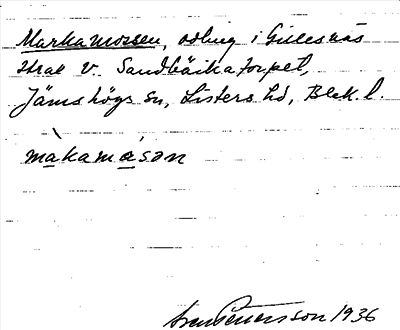 Markamossen, odling i Gillesnäs
strax v. Sandbäckatorpet,
Jämshögs sn, Listers hd, Blek. l.
màkamåsan
Sven Petersson 1936